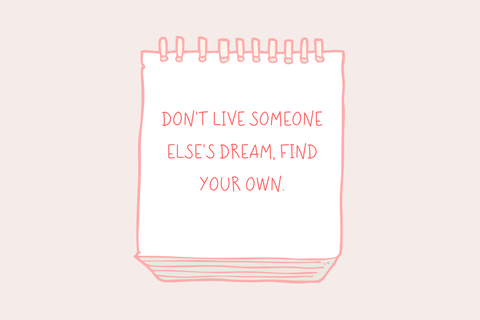 DON'T LIVE SOMEONE
ELSE'S DREAM, FIND
YOUR OWN.